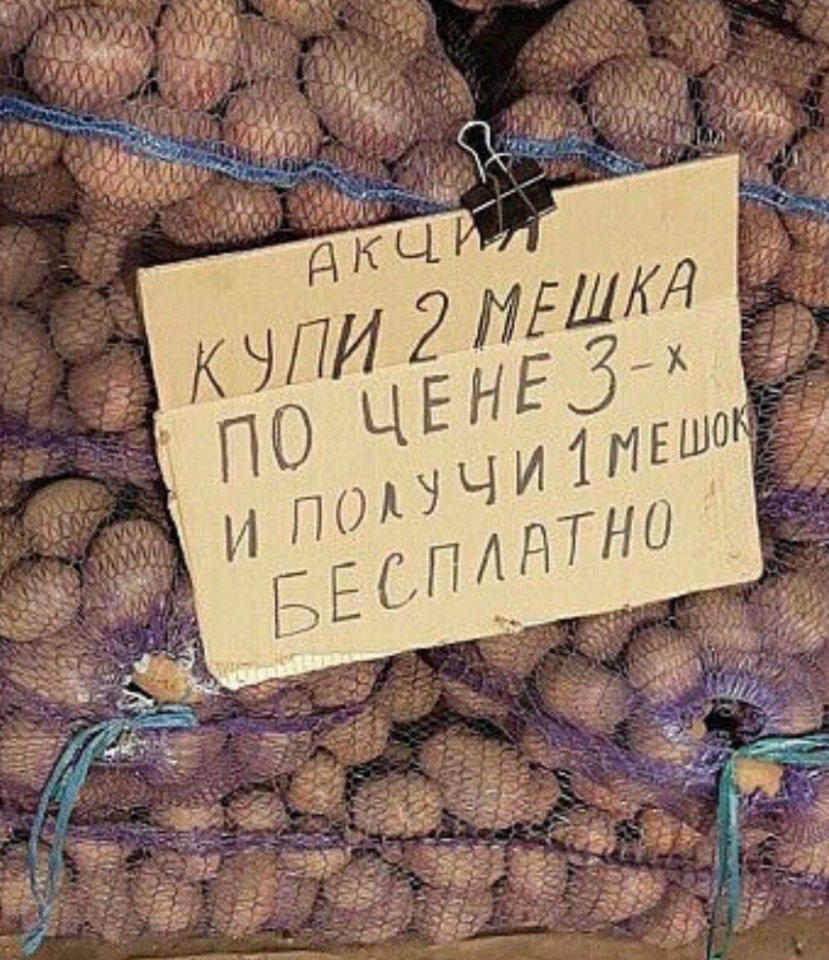 АКЦИЯ
КУПИ 2 МЕШКА
ПО ЦЕНЕ 3-х
И ПОЛУЧИ 1 МЕШОК
БЕСПЛАТНО